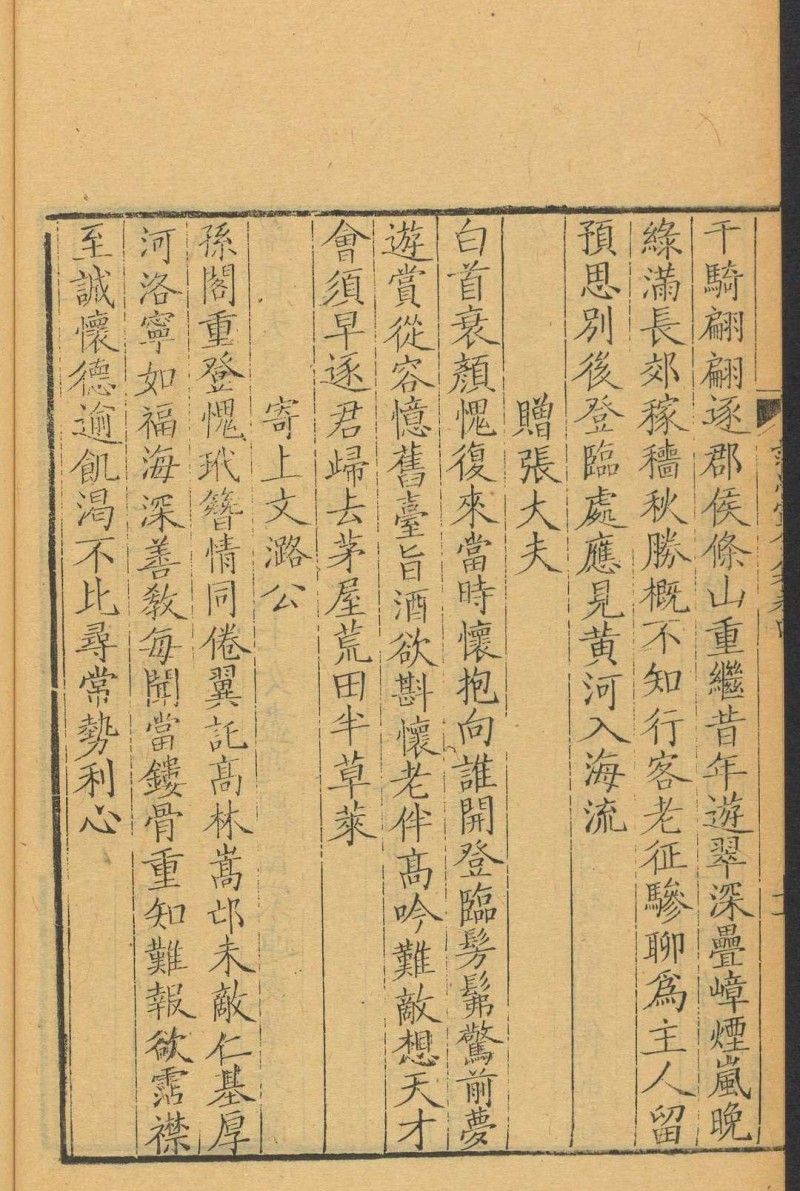 干騎翩翩逐郡侯條山重繼昔年遊翠深疊嶂煙嵐晚
綠滿長郊稼穡秋勝概不知行客老征驂聊爲主人留
預思別後登臨處應見黄河入海流
贈張大夫
白首衰顏愧復來當時懷抱向誰開登臨髣髴驚前夢
遊賞從容憶舊臺旨酒欲斟懷老伴高吟難敵想天才
會須早逐君歸去茅屋荒田半草萊
寄上文潞公
孫閣重登愧玳簪情同倦翼託高林嵩邙未敵仁基厚
河洛寧如福海深善教每聞當鏤骨重知難報欲霑襟
至誠懷德逾飢渴不比尋常勢利心